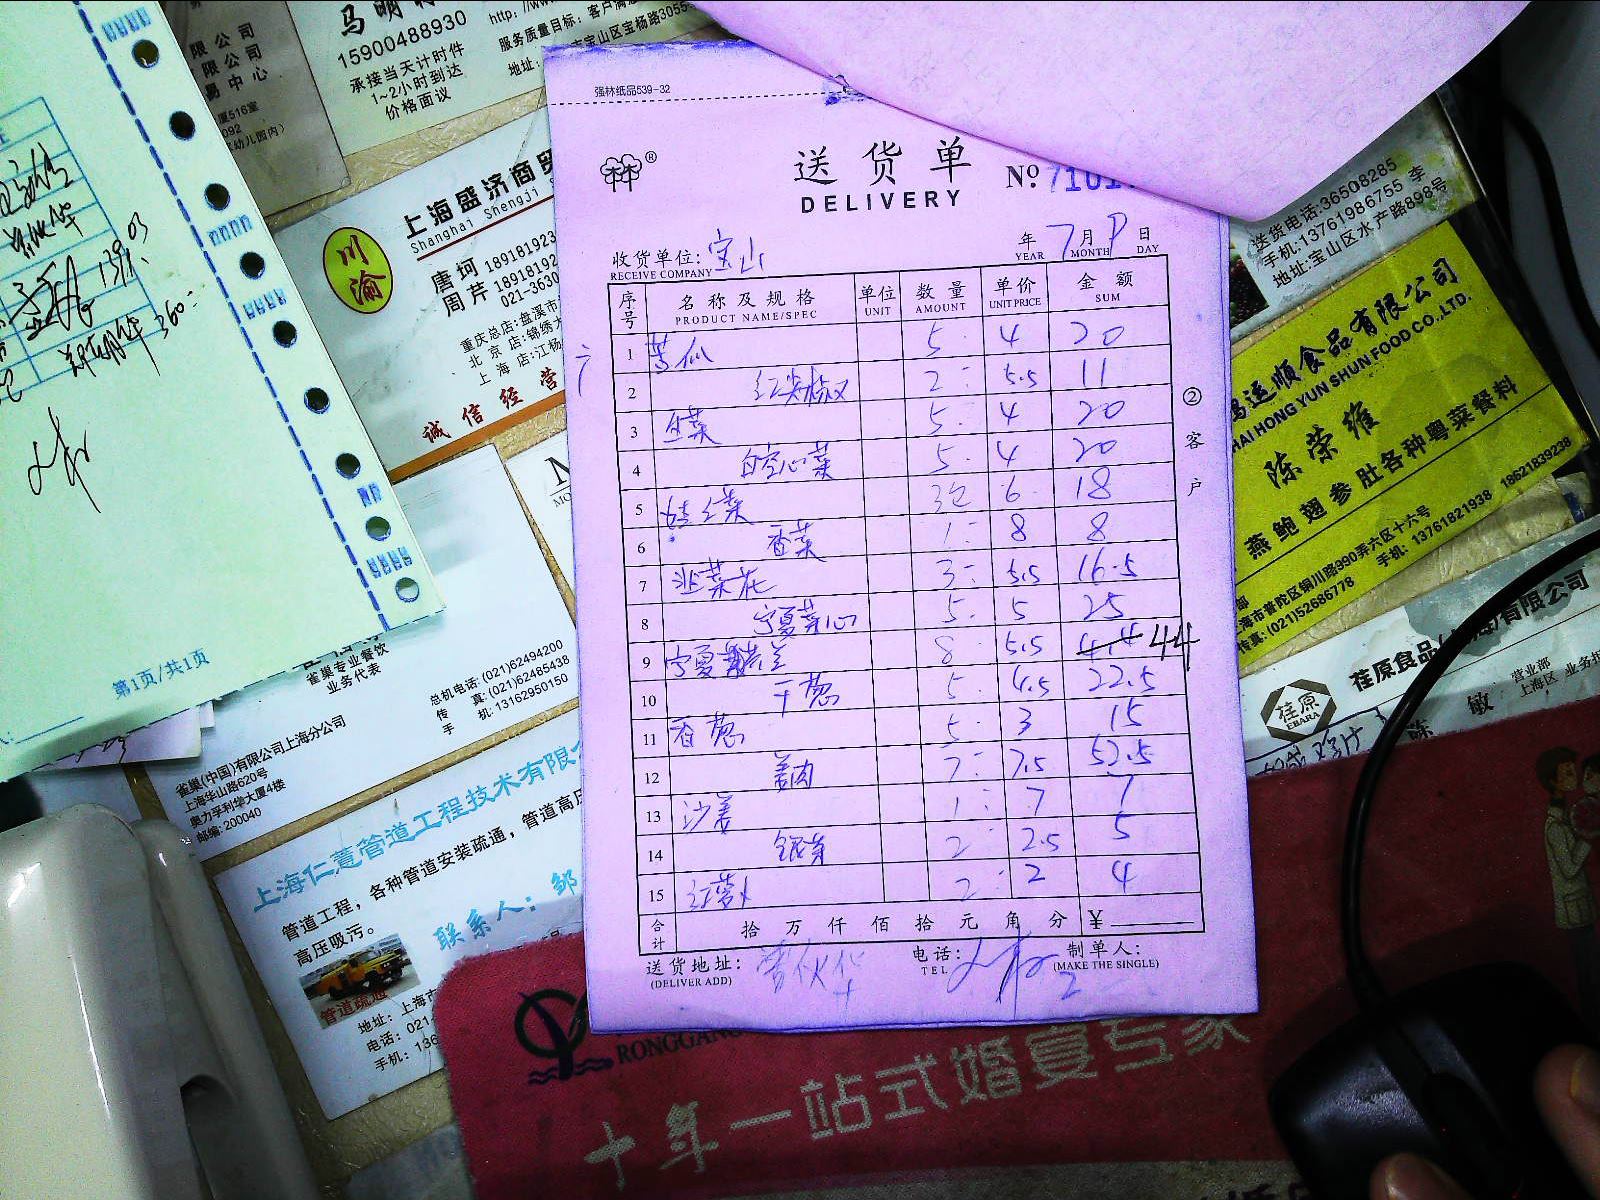 限公司
限公司
易中心
厦516室
092
幼儿园内)
15900488930
承接当天计时件
1~2小时到达
价格面议
服务质量目标：客户满意
市宝山区宝杨路3055
地址：
川渝
上海盛济商贸
Shanghai Shengji
唐珂 18918192
周芹 18918192
021-3630
重庆总店：盘溪市
北京店：锦绣大
上海店：江杨
诚信经营
139.03
360
第1页/共1页
强林纸品539-32
送货单
DELIVERY
№
收货单位：宝山
RECEIVE COMPANY
年 7 月 日
YEAR MONTH DAY
序号 名称及规格 单位 数量 单价 金额
PRODUCT NAME/SPEC UNIT AMOUNT UNIT PRICE SUM
1 苦瓜 5 4 20
2 红尖椒 2 5.5 11
3 生菜 5 4 20
4 白空心菜 5 4 20
5 娃娃菜 3包 6 18
6 香菜 1 8 8
7 韭菜花 3 5.5 16.5
8 宁夏菜心 5 5 25
9 宁夏芥兰 8 5.5 44
10 干葱 5 4.5 22.5
11 香葱 5 3 15
12 姜肉 7 7.5 52.5
13 沙姜 1 7 7
14 银芽 2 2.5 5
15 红萝卜 2 2 4
合计 拾万仟佰拾元角分 ¥
送货地址：
(DELIVER ADD)
电话：
TEL
制单人：
(MAKE THE SINGLE)
②客户
送货电话:36508285
手机:13761986755 李
地址:宝山区水产路898号
运顺食品有限公司
HAI HONG YUN SHUN FOOD CO.,LTD.
陈荣维
燕鲍翅参肚各种粤菜餐料
上海市普陀区铜川路990弄六区十六号
传真:(021)52686778
手机: 13761821938 18621839238
荏原
EBARA
荏原食品(上海)有限公司
陈敏
营业部
上海区
雀巢专业餐饮
业务代表
总机电话: (021)62494200
传真: (021)62485438
手机: 13162950150
雀巢(中国)有限公司上海分公司
上海华山路620号
奥力孚利华大厦4楼
邮编: 200040
上海仁薏管道工程技术有限
管道工程，各种管道安装疏通，管道高压
高压吸污。
联系人：邹
管道疏通
地址：上海市
电话：021
手机：136
RONGGANG
十年一站式婚宴专家